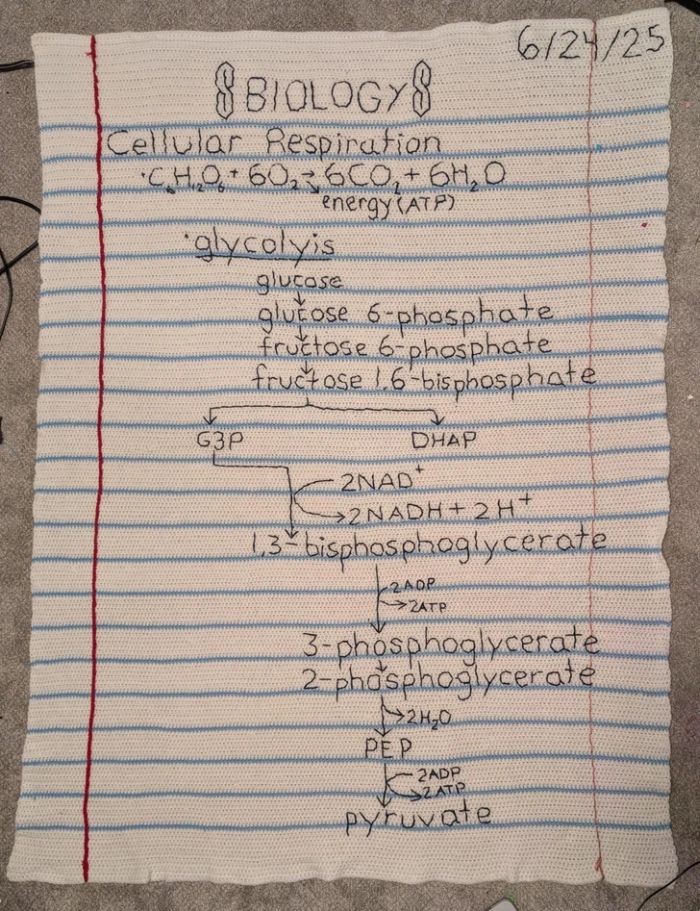 6/24/25
BIOLOGY
Cellular Respiration
·C₆H₁₂O₆ + 6O₂ → 6CO₂ + 6H₂O
energy (ATP)
·glycolyis
glucose
↓
glucose 6-phosphate
↓
fructose 6-phosphate
↓
fructose 1,6-bisphosphate
G3P DHAP
2NAD⁺
→2NADH + 2H⁺
1,3-bisphosphoglycerate
2ADP
→2ATP
3-phosphoglycerate
↓
2-phosphoglycerate
→2H₂O
PEP
2ADP
→2ATP
pyruvate